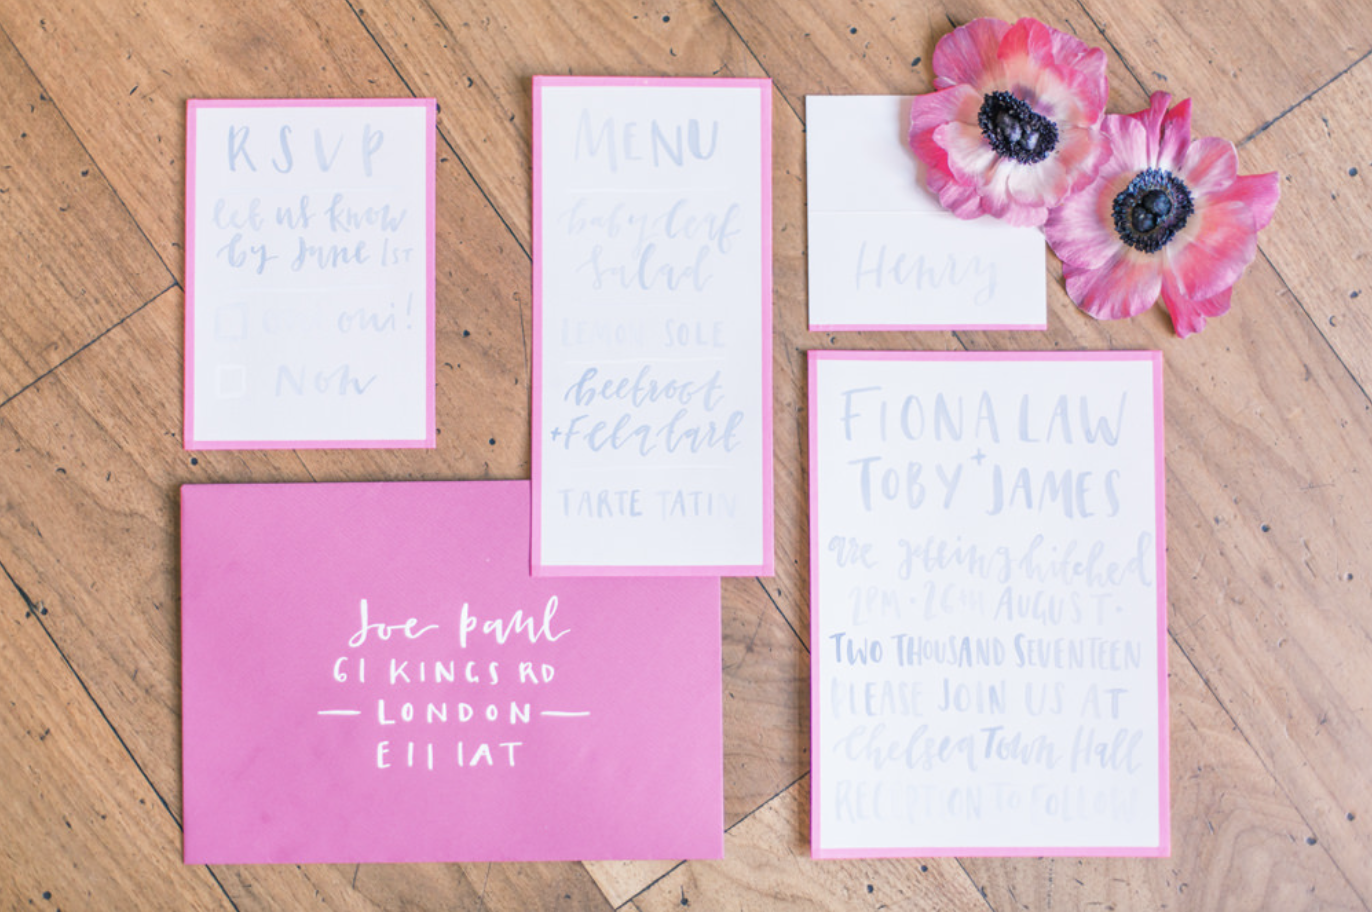 RSVP
let us know
by June 1ST
oui!
Non
MENU
baby leaf
salad
LEMON SOLE
beetroot
+ Feta tart
TARTE TATIN
Henry
FIONA LAW
+
TOBY JAMES
are getting hitched
2PM · 26TH AUGUST ·
TWO THOUSAND SEVENTEEN
PLEASE JOIN US AT
Chelsea Town Hall
RECEPTION TO FOLLOW
Joe Paul
61 KINGS RD
— LONDON —
E11 1AT